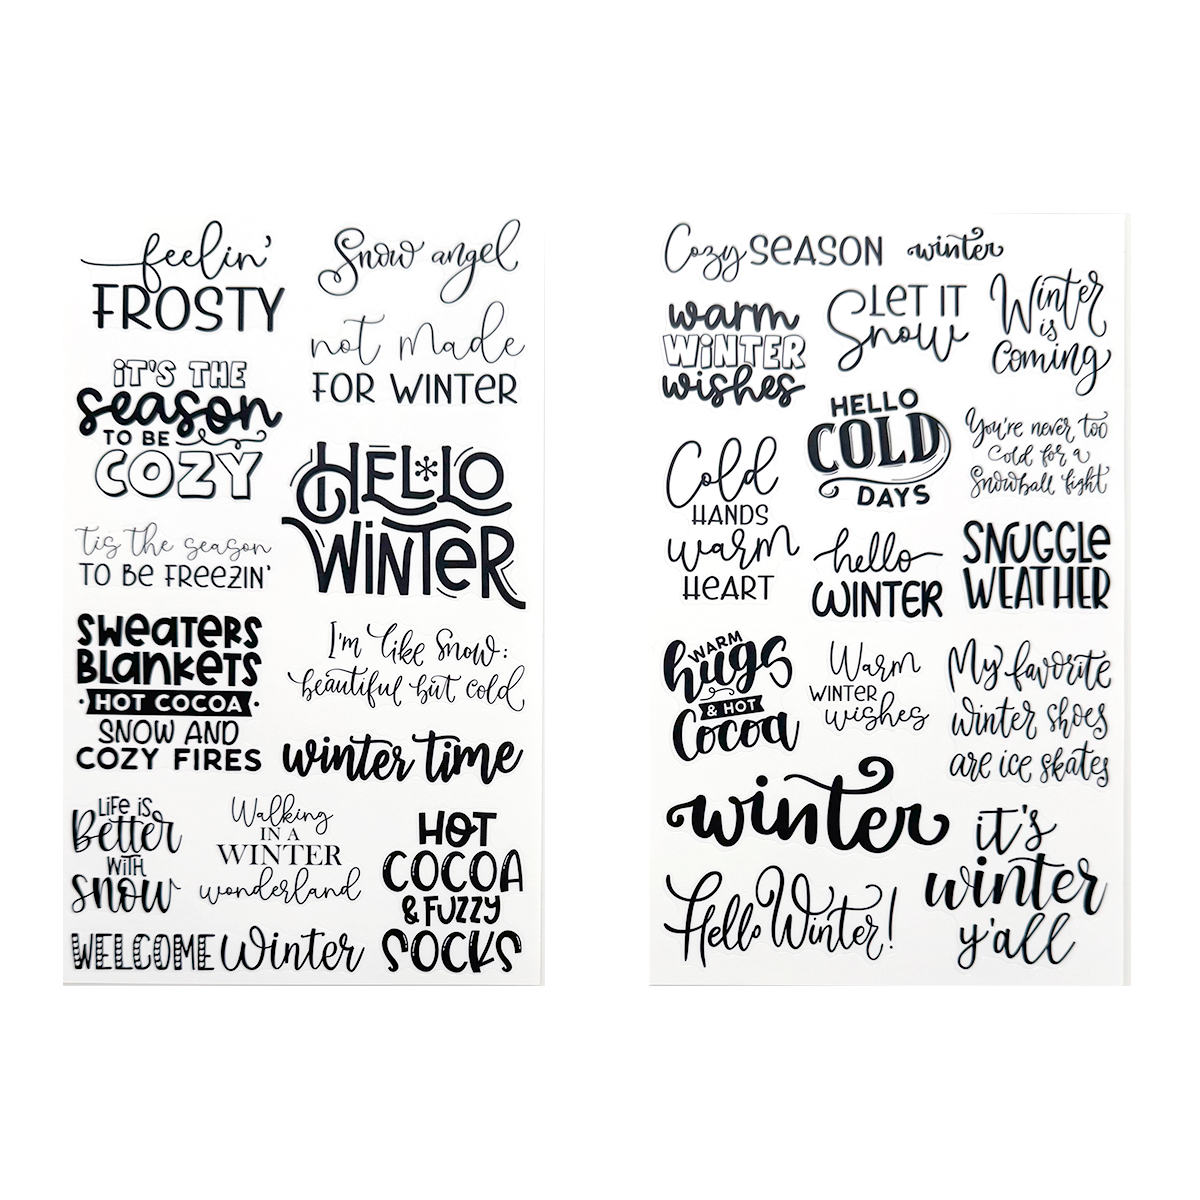 feelin'
FROSTY
Snow angel
not made
FOR WINTER
IT'S THE
season
TO BE
COZY
HELLO
WINTER
tis the season
TO BE FREEZIN'
SWEATERS
BLANKETS
· HOT COCOA ·
SNOW AND
COZY FIRES
I'm like snow:
beautiful but cold
winter time
LIFE IS
Better
WITH
snow
Walking
IN A
WINTER
wonderland
HOT
COCOA
& FUZZY
SOCKS
WELCOME Winter
Cozy SEASON
winter
warm
WINTER
wishes
LET IT
Snow
Winter
is
Coming
HELLO
COLD
DAYS
You're never too
Cold for a
Snowball fight
Cold
HANDS
warm
HEART
hello
WINTER
SNUGGLE
WEATHER
WARM
hugs
& HOT
Cocoa
Warm
WINTER
wishes
My favorite
winter shoes
are ice skates
winter
it's
winter
y'all
Hello Winter!